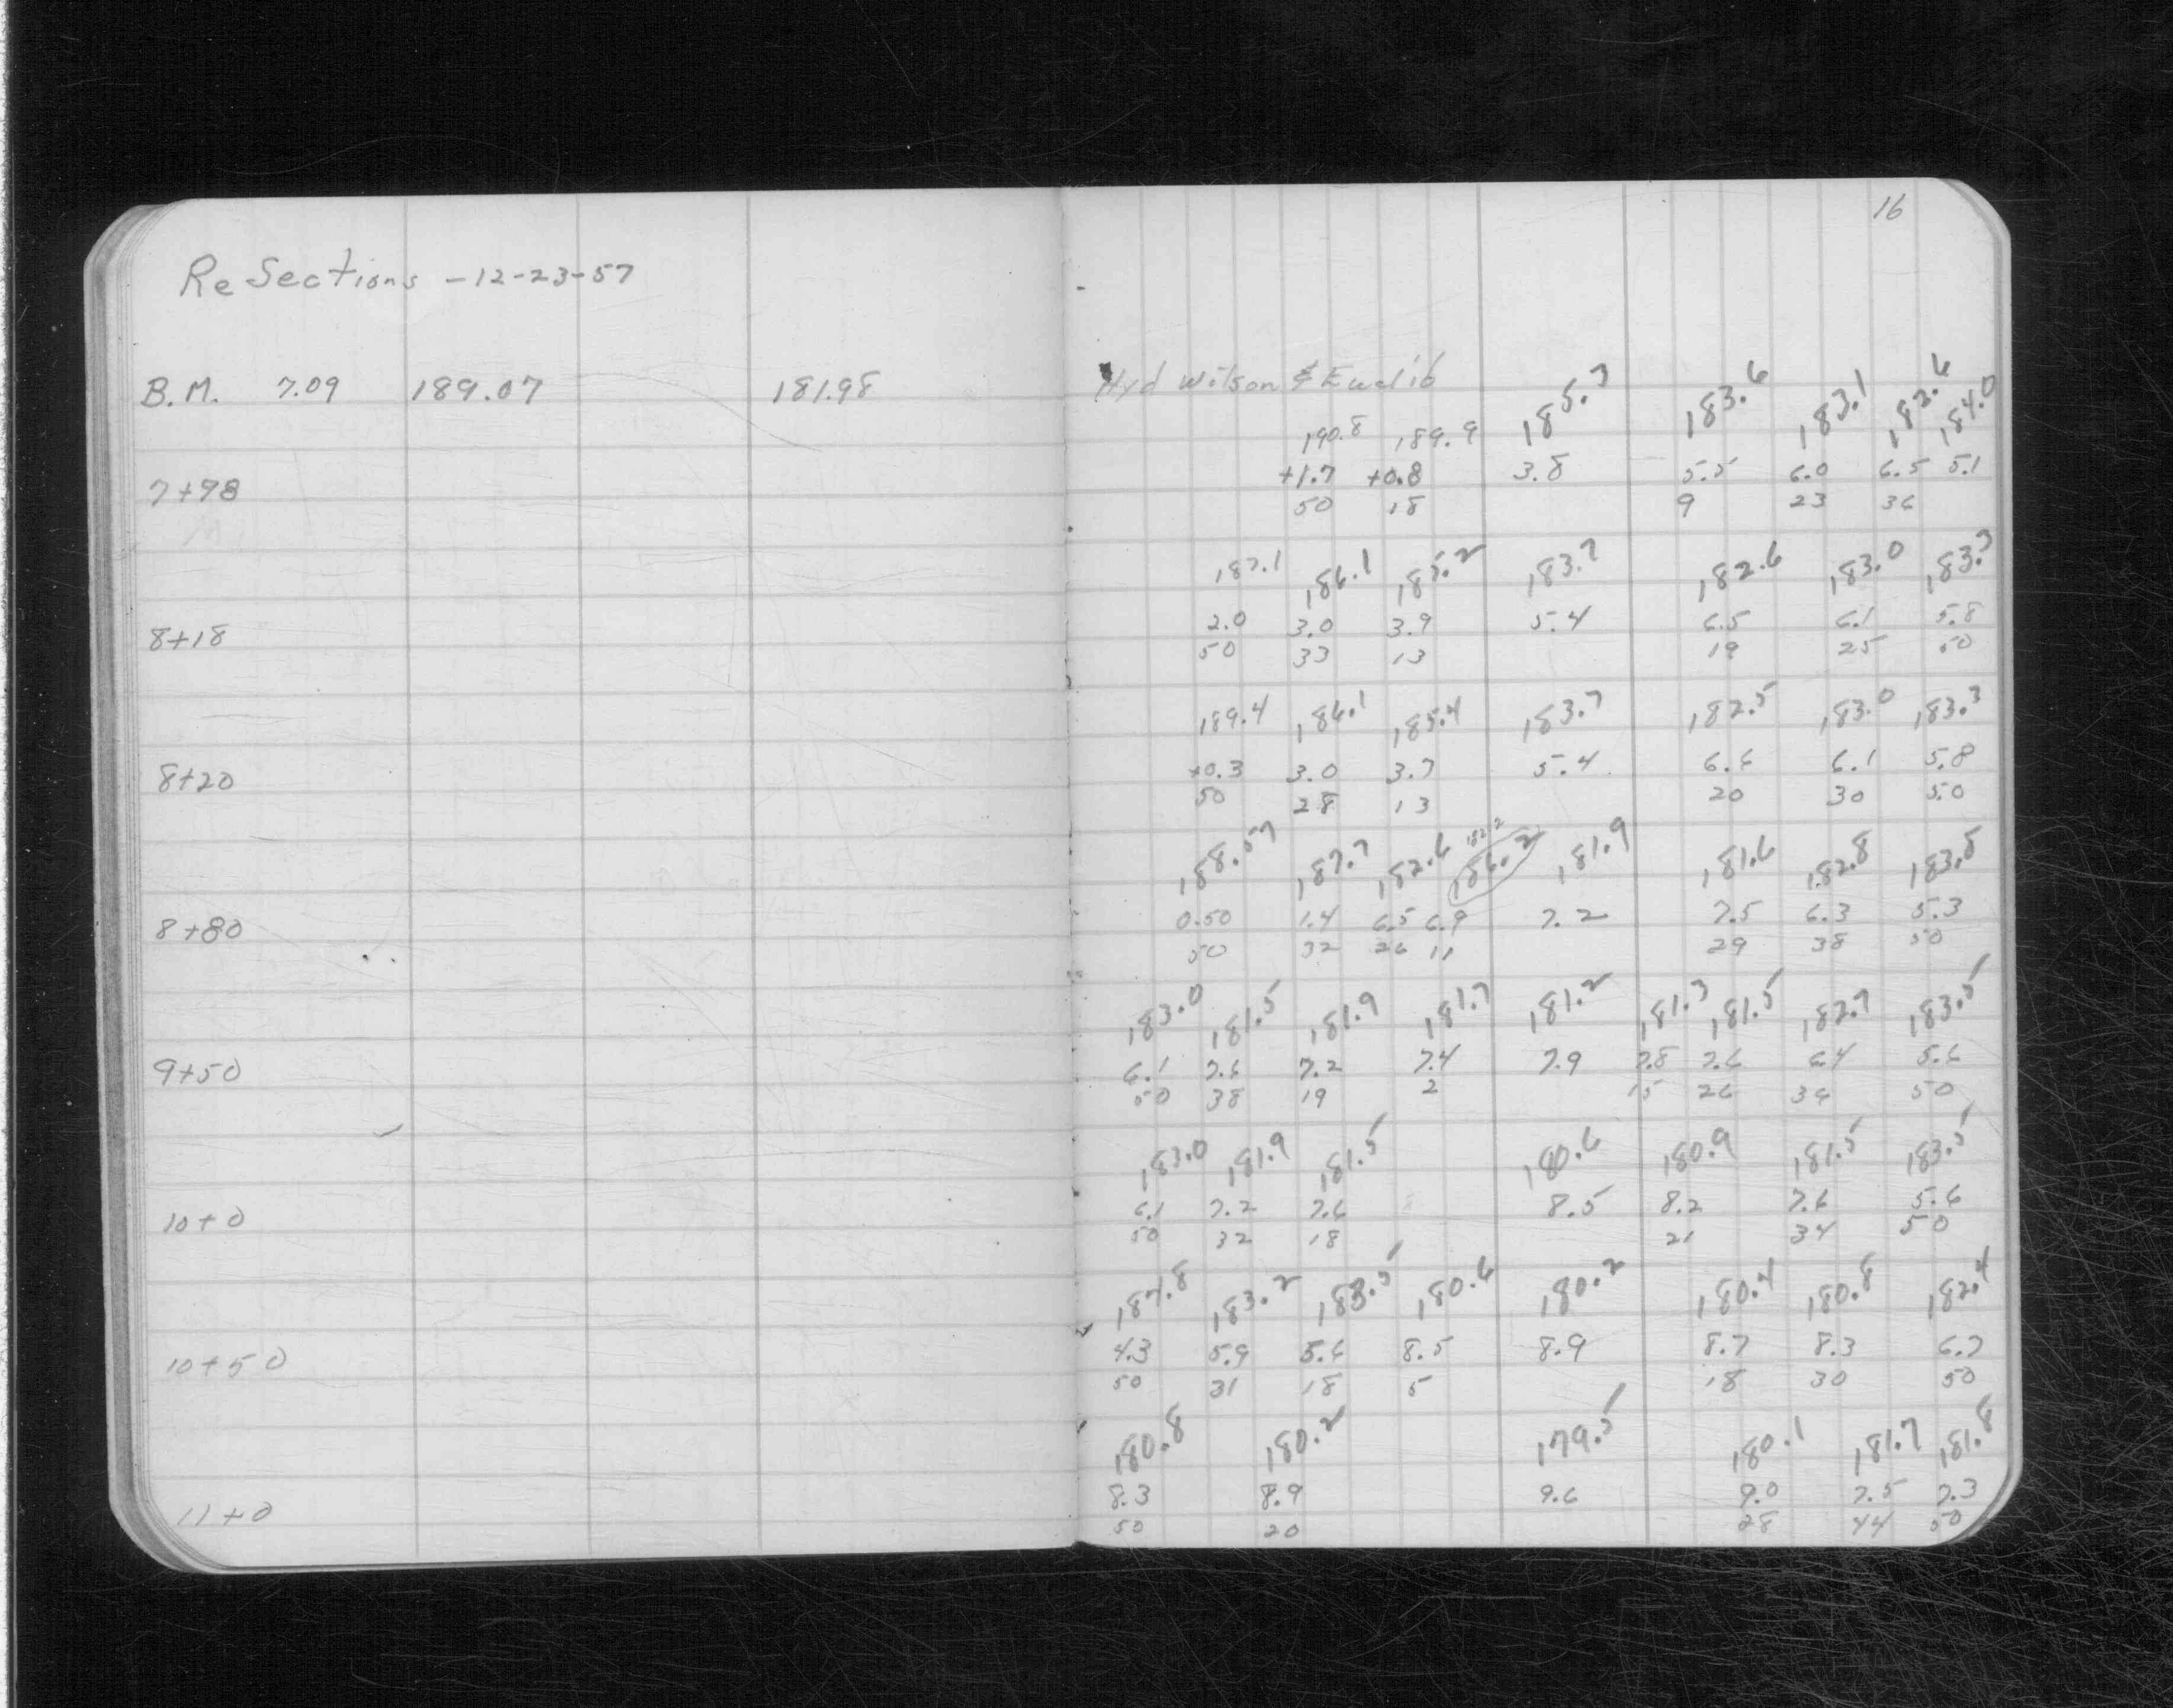 16
ReSections - 12-23-57
B.M. 7.09 189.07 181.98 Hyd Wilson & Euclid
190.8 189.9 185.3 183.6 183.1 182.6 184.0
7+98 +1.7 +0.8 3.8 5.5 6.0 6.5 5.1
50 18 9 23 36
187.1 186.1 185.2 183.7 182.6 183.0 183.3
8+18 2.0 3.0 3.9 5.4 6.5 6.1 5.8
50 33 13 19 25 50
189.4 186.1 185.4 183.7 182.5 183.0 183.3
8+20 +0.3 3.0 3.7 5.4 6.6 6.1 5.8
50 28 13 20 30 50
182.2
188.57 187.7 182.6 186.2 181.9 181.6 182.8 183.8
8+80 0.50 1.4 6.5 6.9 7.2 7.5 6.3 5.3
50 32 26 11 29 38 50
183.0 181.5 181.9 181.7 181.2 181.3 181.5 182.7 183.5
9+50 6.1 7.6 7.2 7.4 7.9 7.8 7.6 6.4 5.6
50 38 19 2 15 26 36 50
183.0 181.9 181.5 180.6 180.9 181.5 183.5
10+0 6.1 7.2 7.6 8.5 8.2 7.6 5.6
50 32 18 21 34 50
184.8 183.2 183.5 180.6 180.2 180.4 180.8 182.4
10+50 4.3 5.9 5.6 8.5 8.9 8.7 8.3 6.7
50 31 18 5 18 30 50
180.8 180.2 179.5 180.1 181.7 181.8
11+0 8.3 8.9 9.6 9.0 7.5 7.3
50 20 28 44 50